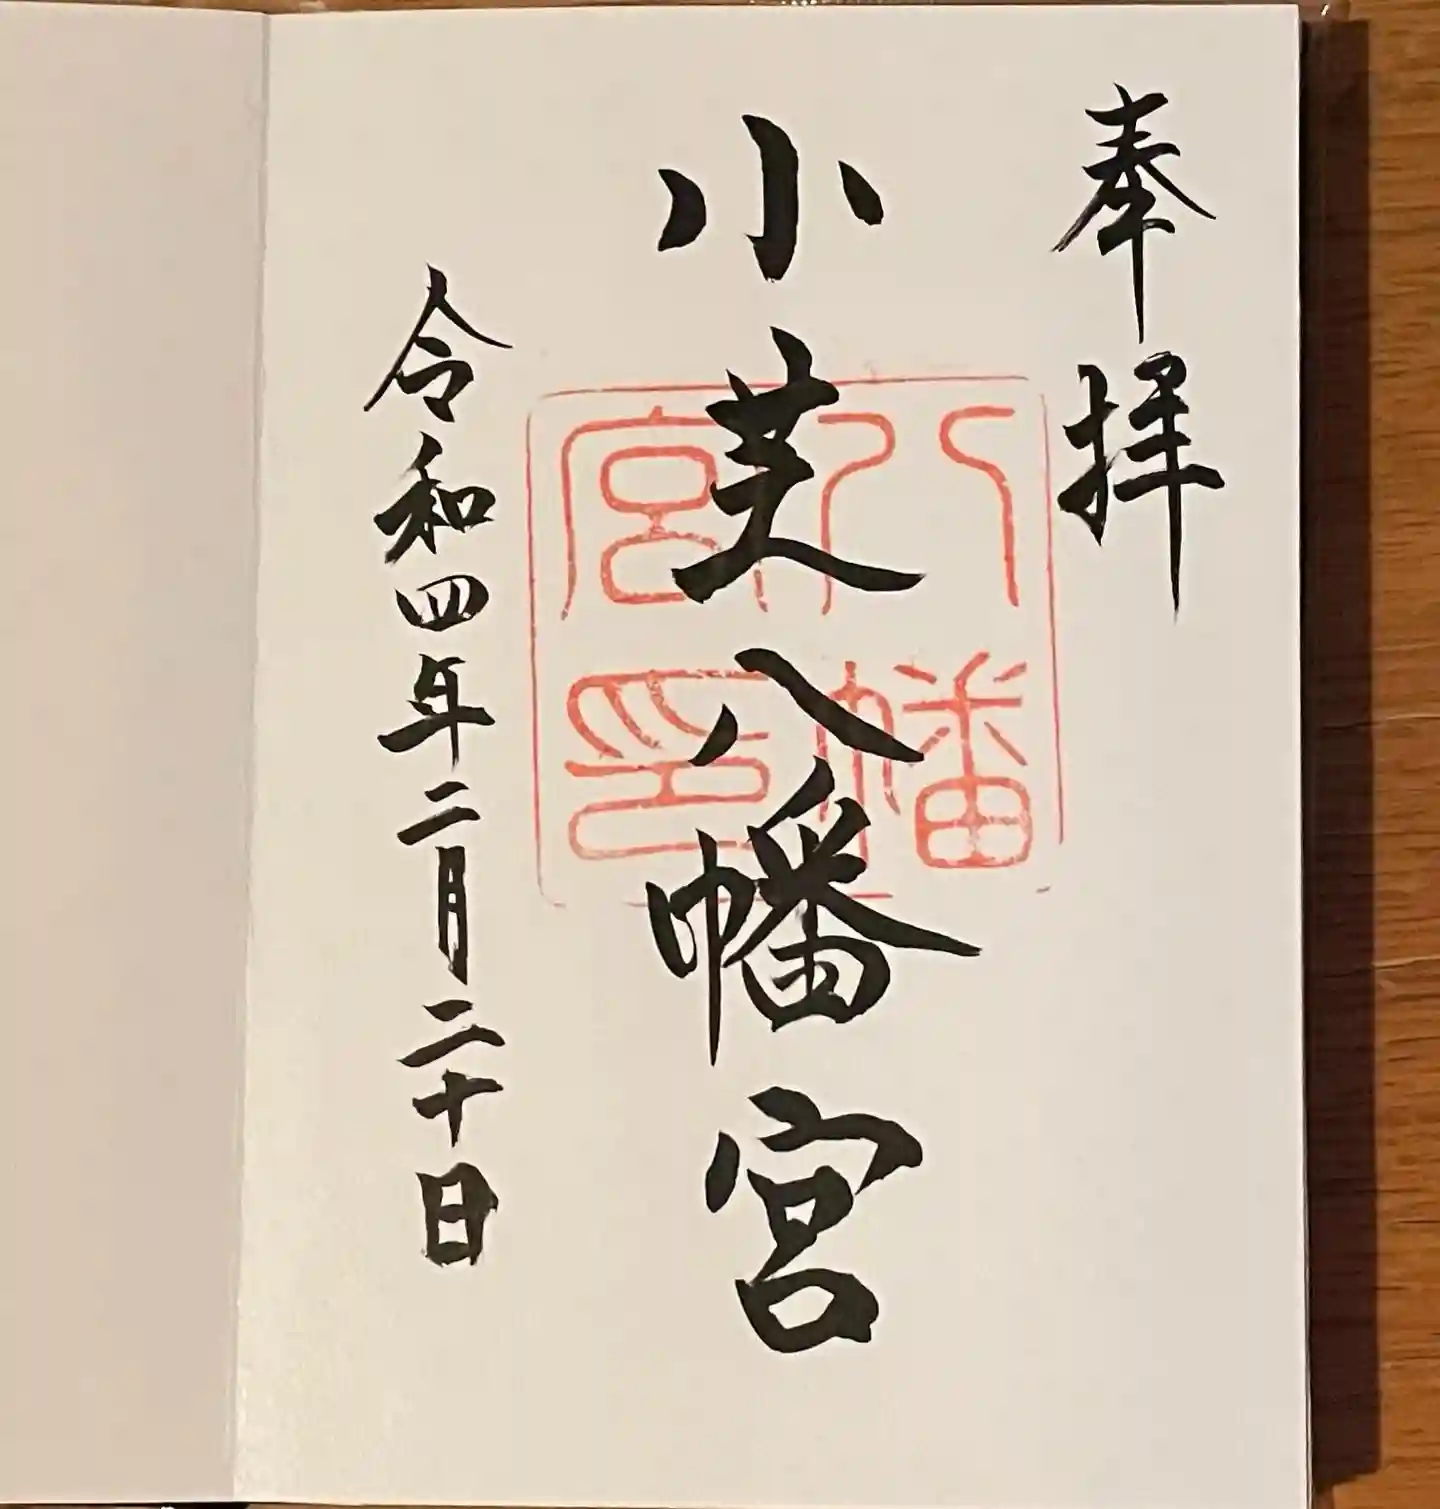 奉拝
小芝八幡宮
八幡
宮印
令和四年二月二十日